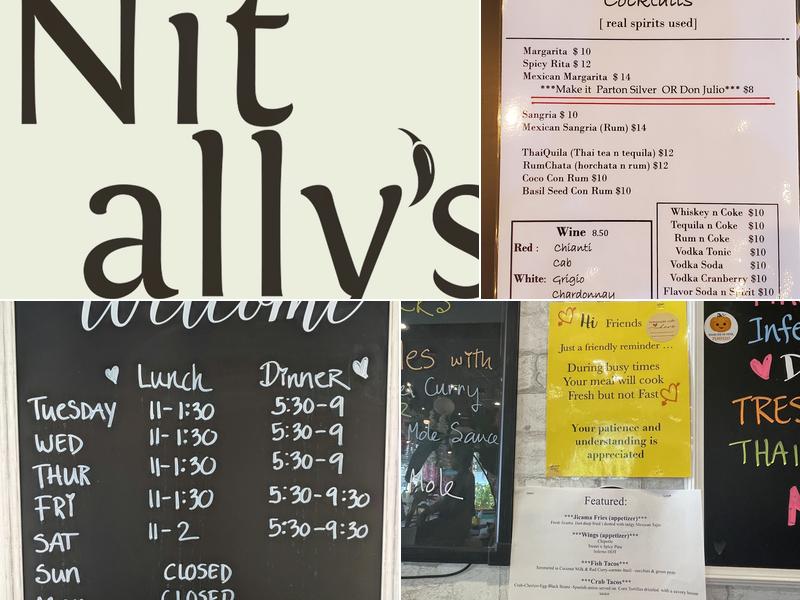 Nit
ally's
Cocktails
[ real spirits used]
Margarita $ 10
Spicy Rita $ 12
Mexican Margarita $ 14
***Make it Parton Silver OR Don Julio*** $8
Sangria $ 10
Mexican Sangria (Rum) $14
ThaiQuila (Thai tea n tequila) $12
RumChata (horchata n rum) $12
Coco Con Rum $10
Basil Seed Con Rum $10
Wine 8.50
Red : Chianti
Cab
White: Grigio
Chardonnay
Whiskey n Coke $10
Tequila n Coke $10
Rum n Coke $10
Vodka Tonic $10
Vodka Soda $10
Vodka Cranberry $10
Flavor Soda n Spirit $10
Welcome
Lunch Dinner
Tuesday 11-1:30 5:30-9
Wed 11-1:30 5:30-9
Thur 11-1:30 5:30-9
Fri 11-1:30 5:30-9:30
Sat 11-2 5:30-9:30
Sun CLOSED
Mon CLOSED
with
Curry
Mole Sauce
Mole
Hi Friends
Just a friendly reminder ...
During busy times
Your meal will cook
Fresh but not Fast
Your patience and
understanding is
appreciated
Featured:
***Jicama Fries (appetizer)***
***Wings (appetizer)***
Chipotle
Sweet n Spicy Paw
Inferno HOT
***Fish Tacos***
***Crab Tacos***
Infe
D
TRES
THAI